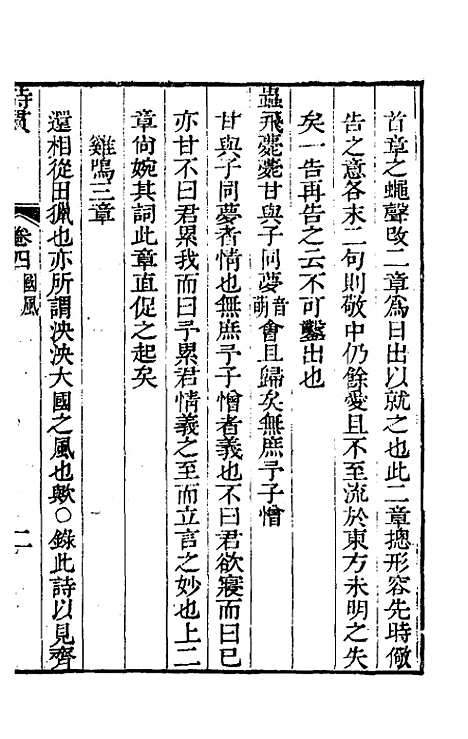 首章之蠅聲改二章爲日出以就之也此二章摠形容先時儆
告之意各末二句則敬中仍餘愛且不至流於東方未明之失
矣一告再告之云不可鑿出也
蟲飛薨薨甘與子同夢音萌會且歸矣無庶予子憎
甘與子同夢者情也無庶予子憎者義也不曰君欲寢而曰已
亦甘不曰君累我而曰予累君情義之至而立言之妙也上二
章尙婉其詞此章直促之起矣
雞鳴三章
還相從田獵也亦所謂泱泱大國之風也歟○錄此詩以見齊
詩貫
卷四 國風
二